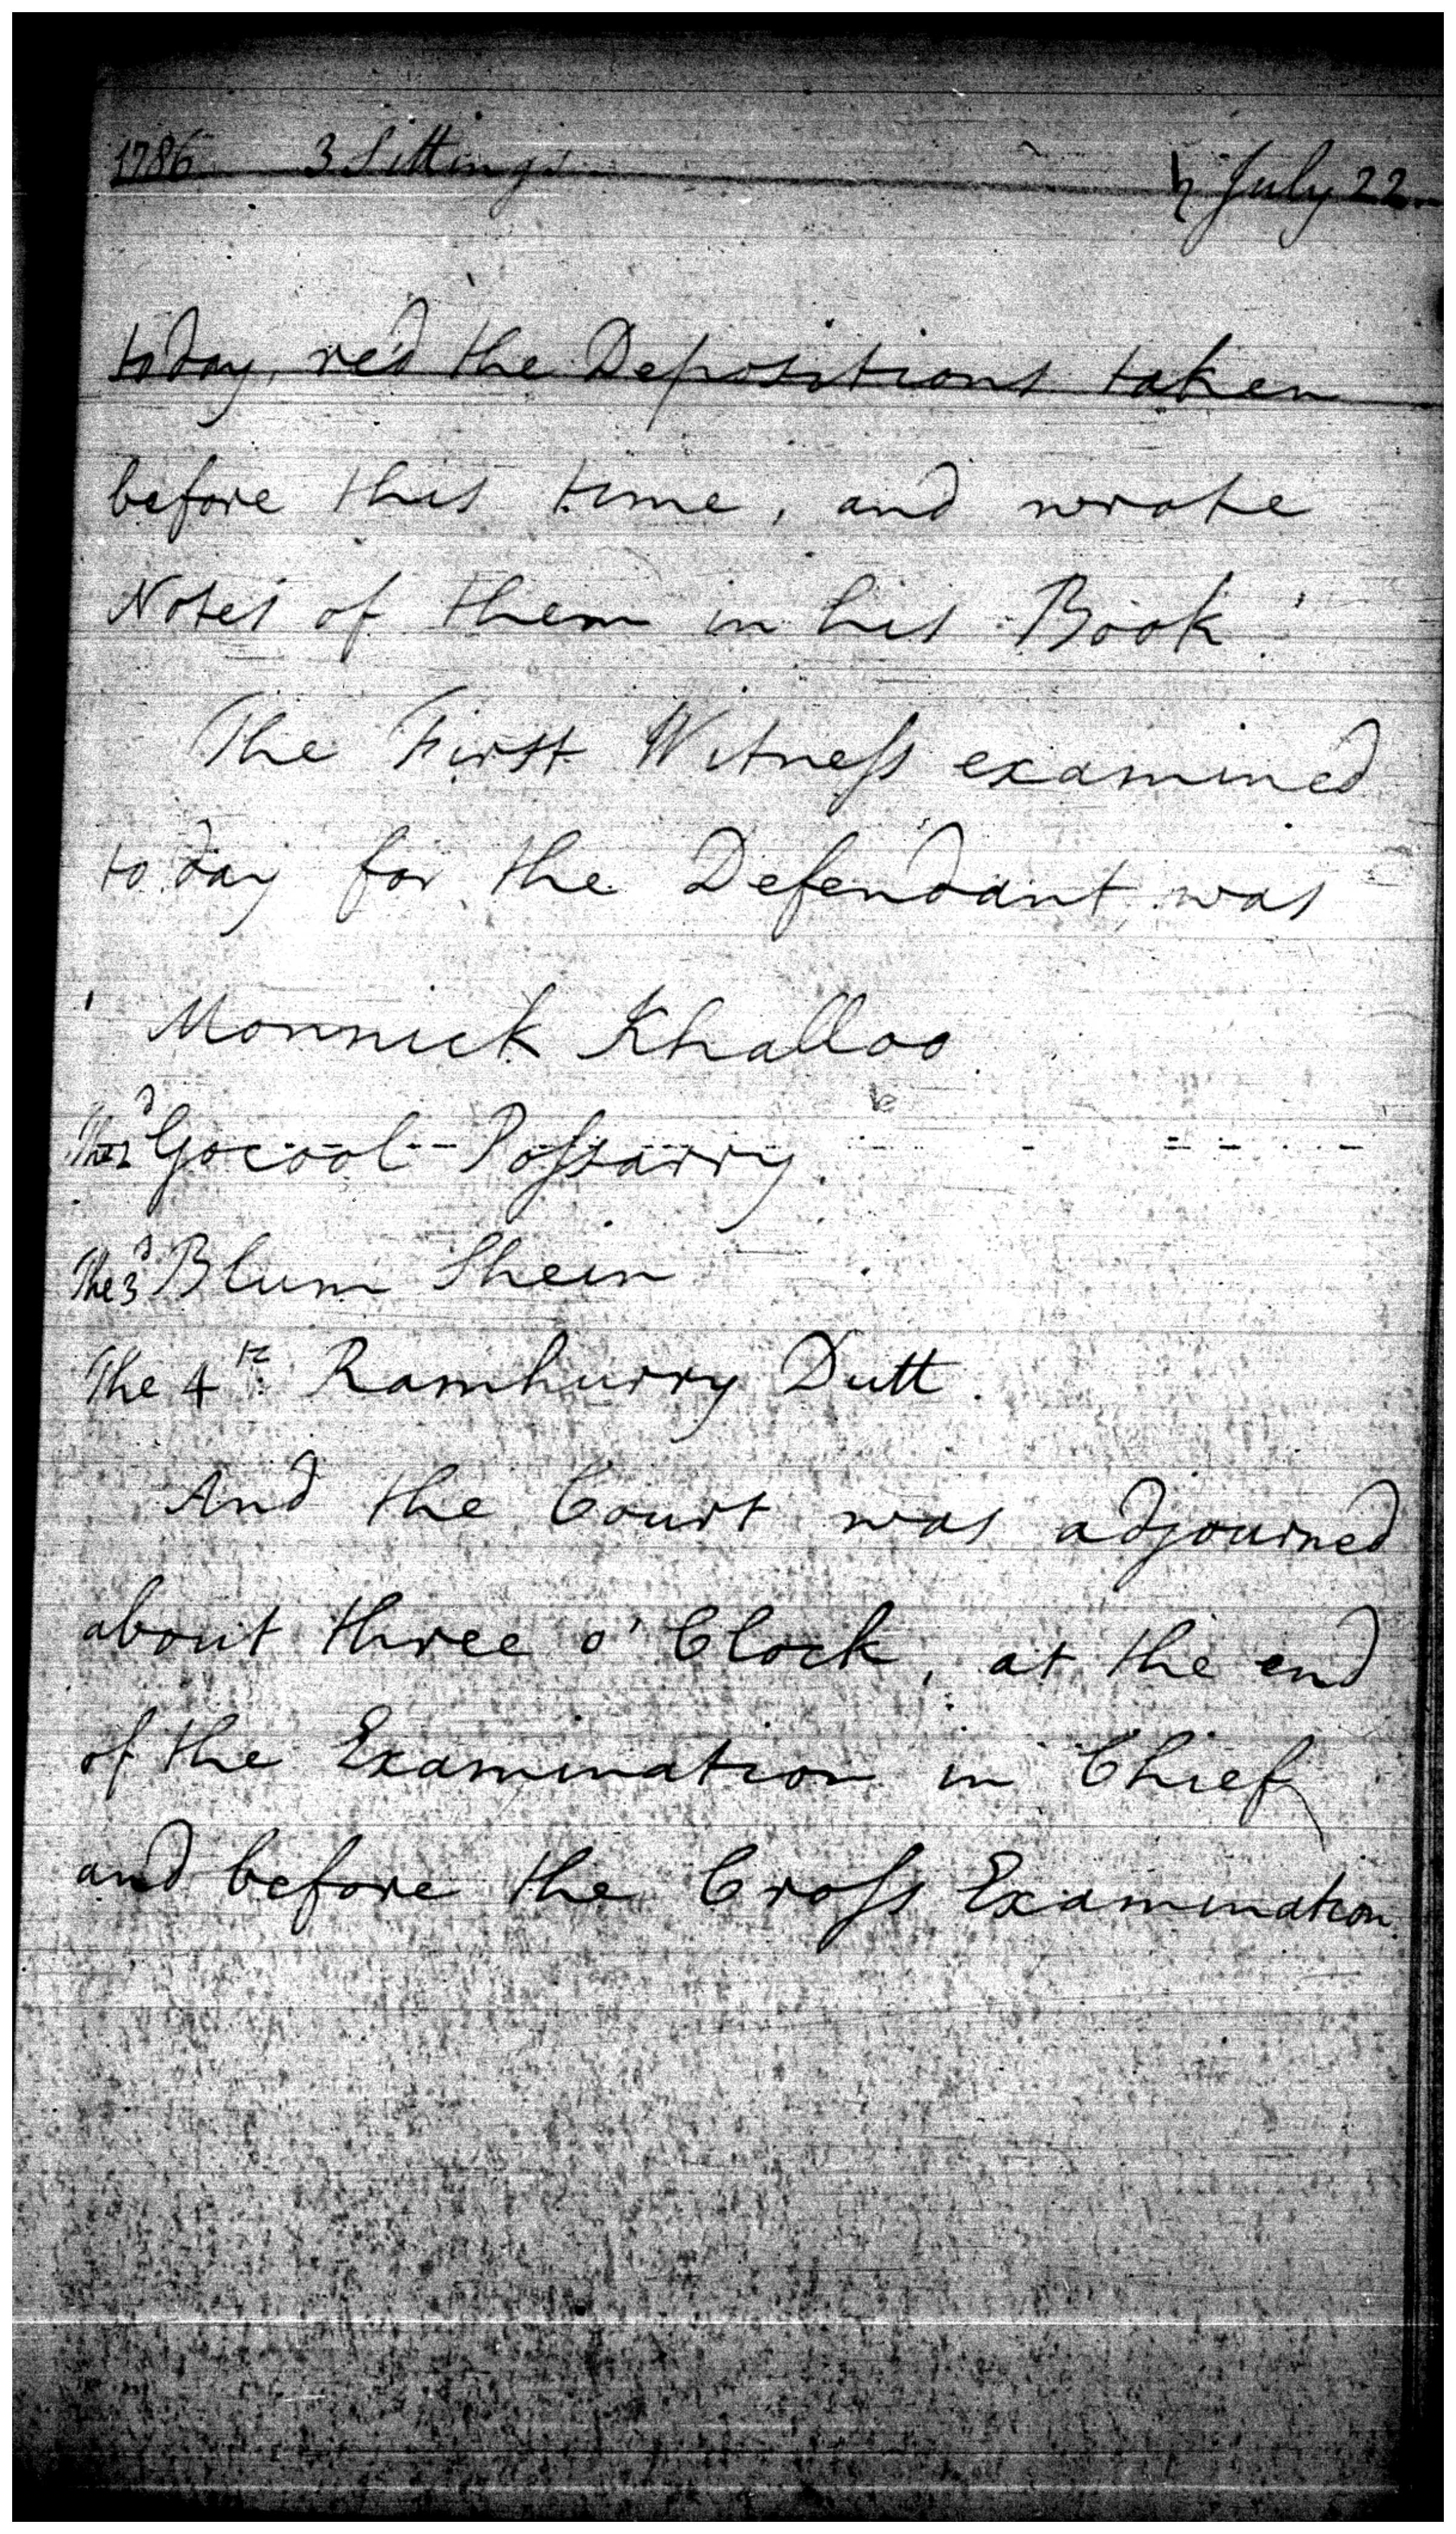 1786. 3 Sittings. ♄ July 22.
today, re'd the Depositions taken
before this time, and wrote
Notes of them in his Book.
The First Witneſs examined
to day for the Defendant, was
Monnick Khalloo
The 2d Gocool Poſsarry.
The 3d Blum Shein
The 4th Ramhurry Dutt.
And the Court was adjourned
about three o'Clock, at the end
of the Examination in Chief
and before the Croſs Examination.